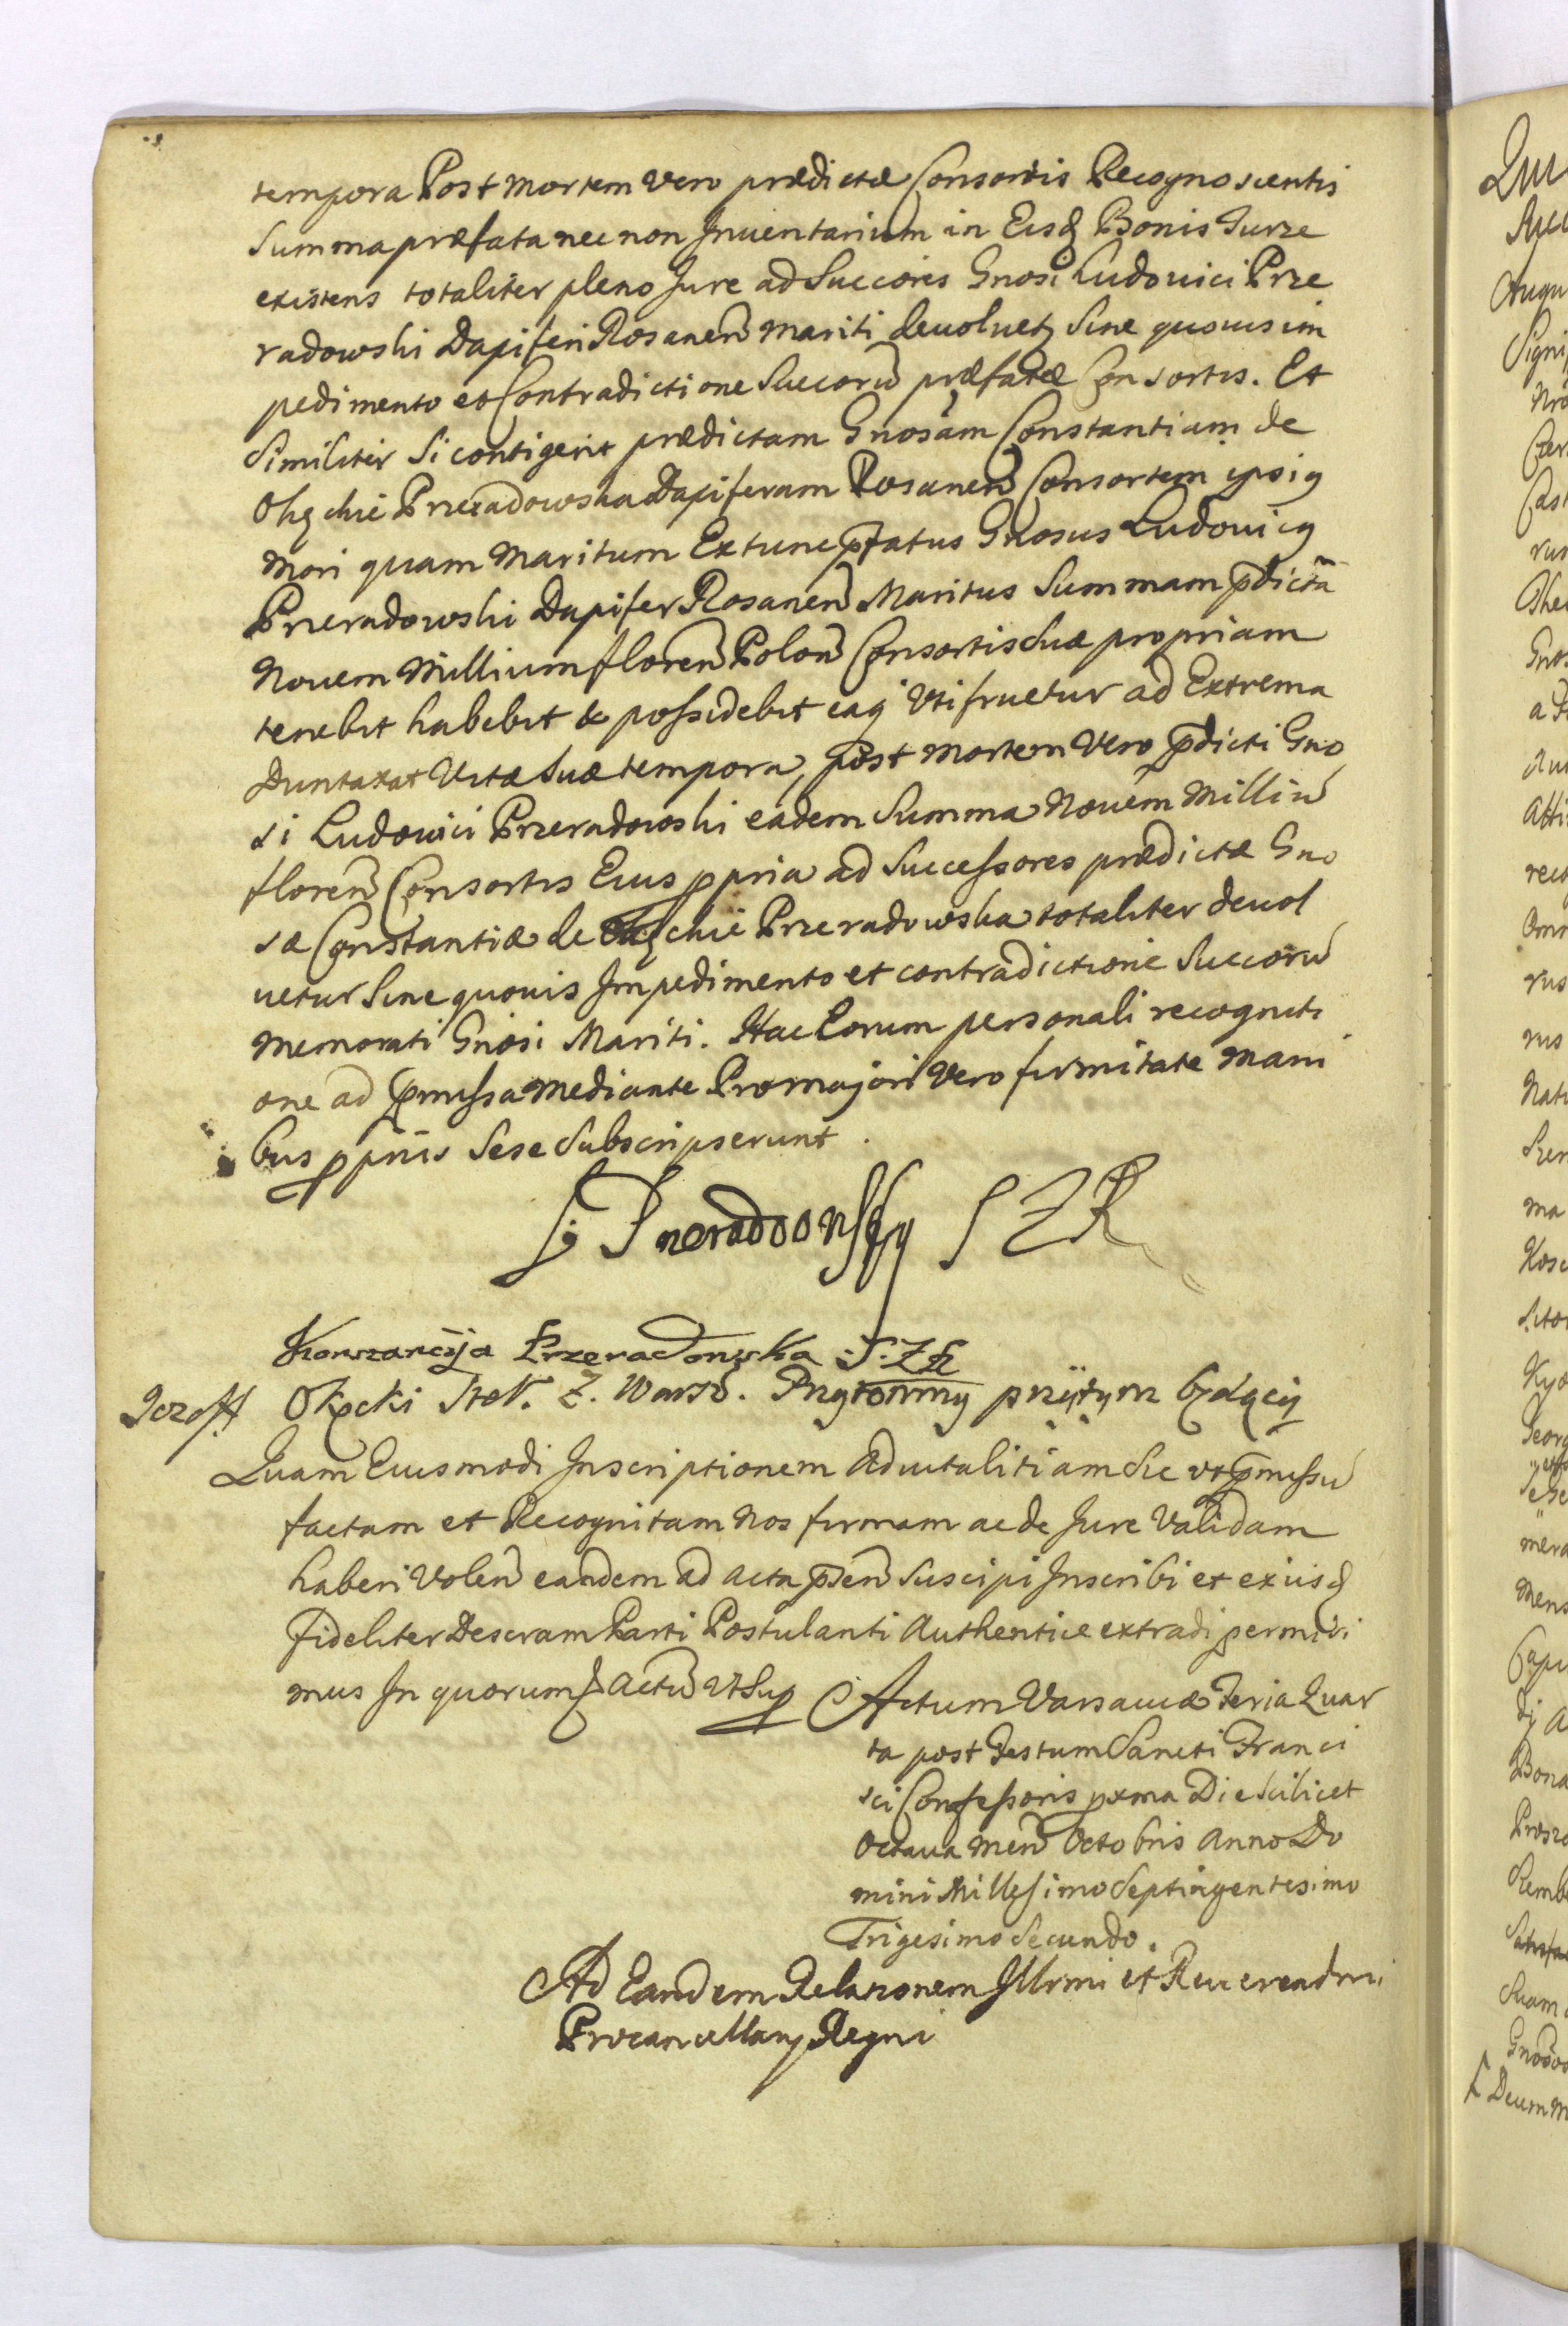 tempora Post mortem vero prædictæ Consortis Recognoscentis
Summa præfata nec non Inuentarium in Eisdẽ Bonis Gurze
existens totaliter pleno Jure ad Succòres Gnosi Ludouici Prze
radowski Dapiferi Rosaneñ mariti deuoluetꝫ Sine quouis im
pedimento et Contradictione Succorũ præfatæ Consortis. Et
Similiter Si contigerit prædictam Gnosam Constantiam de
Okęckie Przeradowska Dapiferam Rosaneñ Consortem ipsiꝯ
mori quam Maritum Extunc p̃fatus Gnosus Ludouicꝯ
Przeradowski Dapifer Rosaneñ Maritus Summam p̃dictã
Nouem Millium floreñ Poloñ Consortis Suæ propriam
tenebit habebit & possidebit eaqꝫ Vti fruetur ad Extrema
Duntaxat Vitæ Suæ tempora, post mortem Vero p̃dicti Gno
si Ludouici Przeradowski eadem Summa Nouem Milliũ
floreñ Consortis Eius ꝓpria ad Successores prædictæ Gno
sæ Constantiæ de Okęckie Przeradowska totaliter deuol
uetur Sine quouis Impedimento et contradictione Succorũ
memorati Gnosi Mariti. Hac Eorum personali recogniti
one ad p̃missa mediante Pro majori Vero firmitate mani
bus ꝓprijs Sese Subscripserunt.
L Przeradowsky S Z R
Konstancija Przeradowska S. Z R
Jozeff Okęcki Z. Warsz. Przytomny przÿtym będący
Quam Eiusmodi Inscriptionem Aduitalitiam Sic vt p̃missũ
factam et Recognitam Nos firmam ac de Jure Validam
haberi Voleñ eandem ad acta p̃señ Suscipi Inscribi et ex iisdẽ
fideliter Descram Parti Postulanti Authentice extradi permisi
mus In quorum & Actũ vt Supꝫ
Actum Varsauiæ Feria Quar
ta post Festum Sancti Franci
sci Confessoris pxma Die Scilicet
Octaua meñ Octobris Anno Do
mini Millesimo Septingentesimo
Trigesimo Secundo.
Ad Eandem Relationem Illrmi et Reuerendmi
Procancellarij Regni